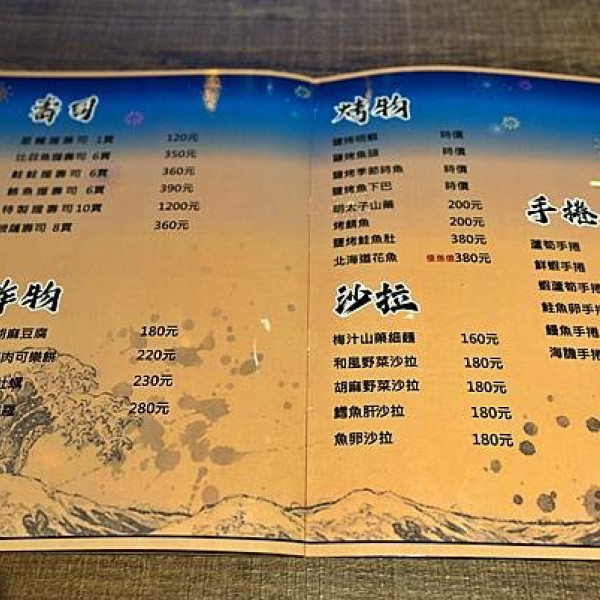 壽司
握壽司 1貫 120元
比目魚握壽司 6貫 350元
鮭鮭握壽司 6貫 360元
鮪魚握壽司 6貫 390元
特製握壽司10貫 1200元
壽司 8貫 360元
炸物
胡麻豆腐 180元
肉可樂餅 220元
牡蠣 230元
280元
烤物
鹽烤 時價
鹽烤魚頭 時價
鹽烤季節時魚 時價
鹽烤魚下巴 時價
明太子山藥 200元
烤鯖魚 200元
鹽烤鮭魚肚 380元
北海道花魚 優惠價380元
沙拉
梅汁山藥細麵 160元
和風野菜沙拉 180元
胡麻野菜沙拉 180元
鱈魚肝沙拉 180元
魚卵沙拉 180元
手捲
蘆筍手捲
鮮蝦手捲
蝦蘆筍手捲
鮭魚卵手捲
鰻魚手捲
海膽手捲